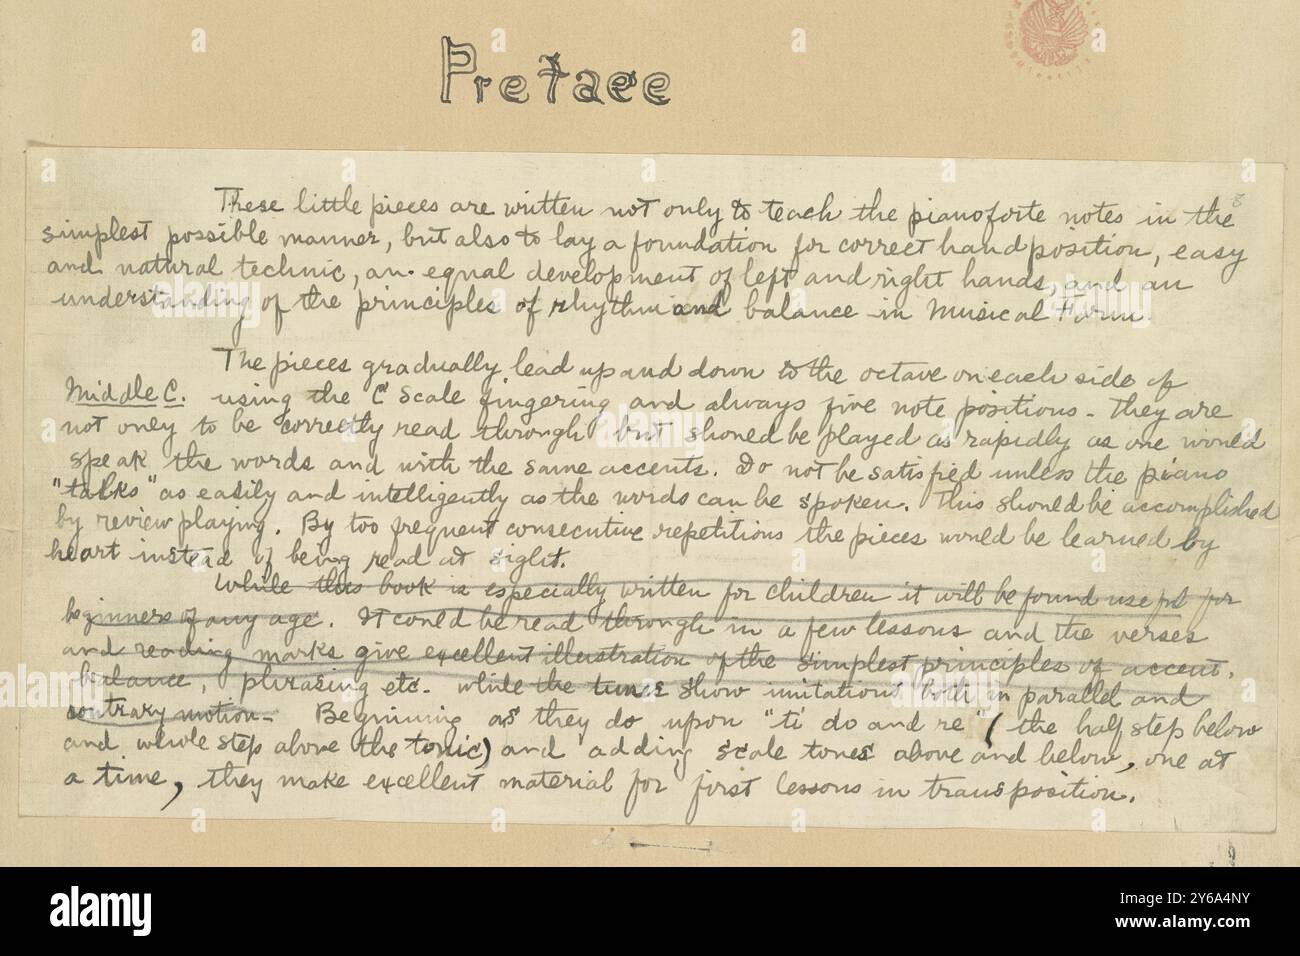 Preface
8
These little pieces are written not only to teach the pianoforte notes in the
simplest possible manner, but also to lay a foundation for correct hand position, easy
and natural technic, an equal development of left and right hands, and an
understanding of the principles of rhythm and balance in Musical Form.
The pieces gradually lead up and down to the octave on each side of
Middle C. using the C Scale fingering and always five note positions - They are
not only to be correctly read through but shoned be played as rapidly as one would
speak the words and with the same accents. Do not be satisfied unless the piano
"talks" as easily and intelligently as the words can be spoken. This should be accomplished
by review playing. By too frequent consecutive repetitions the pieces would be learned by
heart instead of being read at sight.
While this book is especially written for children it will be found useful for
beginners of any age. It could be read through in a few lessons and the verses
and reading marks give excellent illustration of the simplest principles of accent,
balance, phrasing etc. while the tunes show imitations both in parallel and
contrary motion - Beginning as they do upon "ti do and re" (the half step below
and whole step above the tonic) and adding scale tones above and below, one at
a time, they make excellent material for first lessons in transposition.
alamy
Image ID: 2Y6A4NY
www.alamy.com